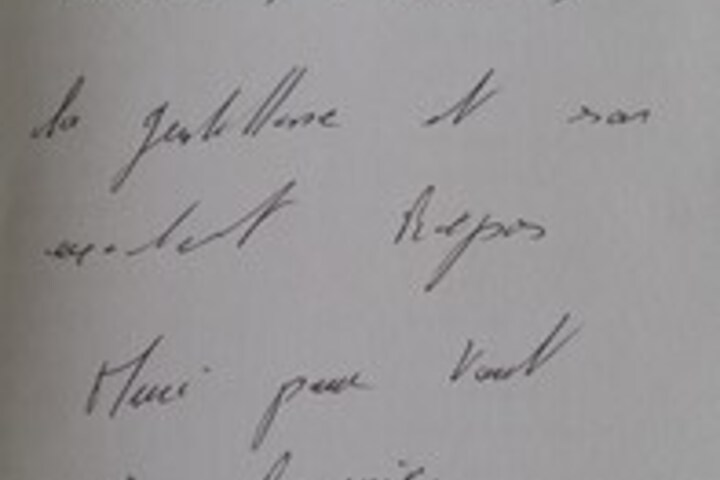 la gentillesse et son
excellent Repas
Merci pour tout